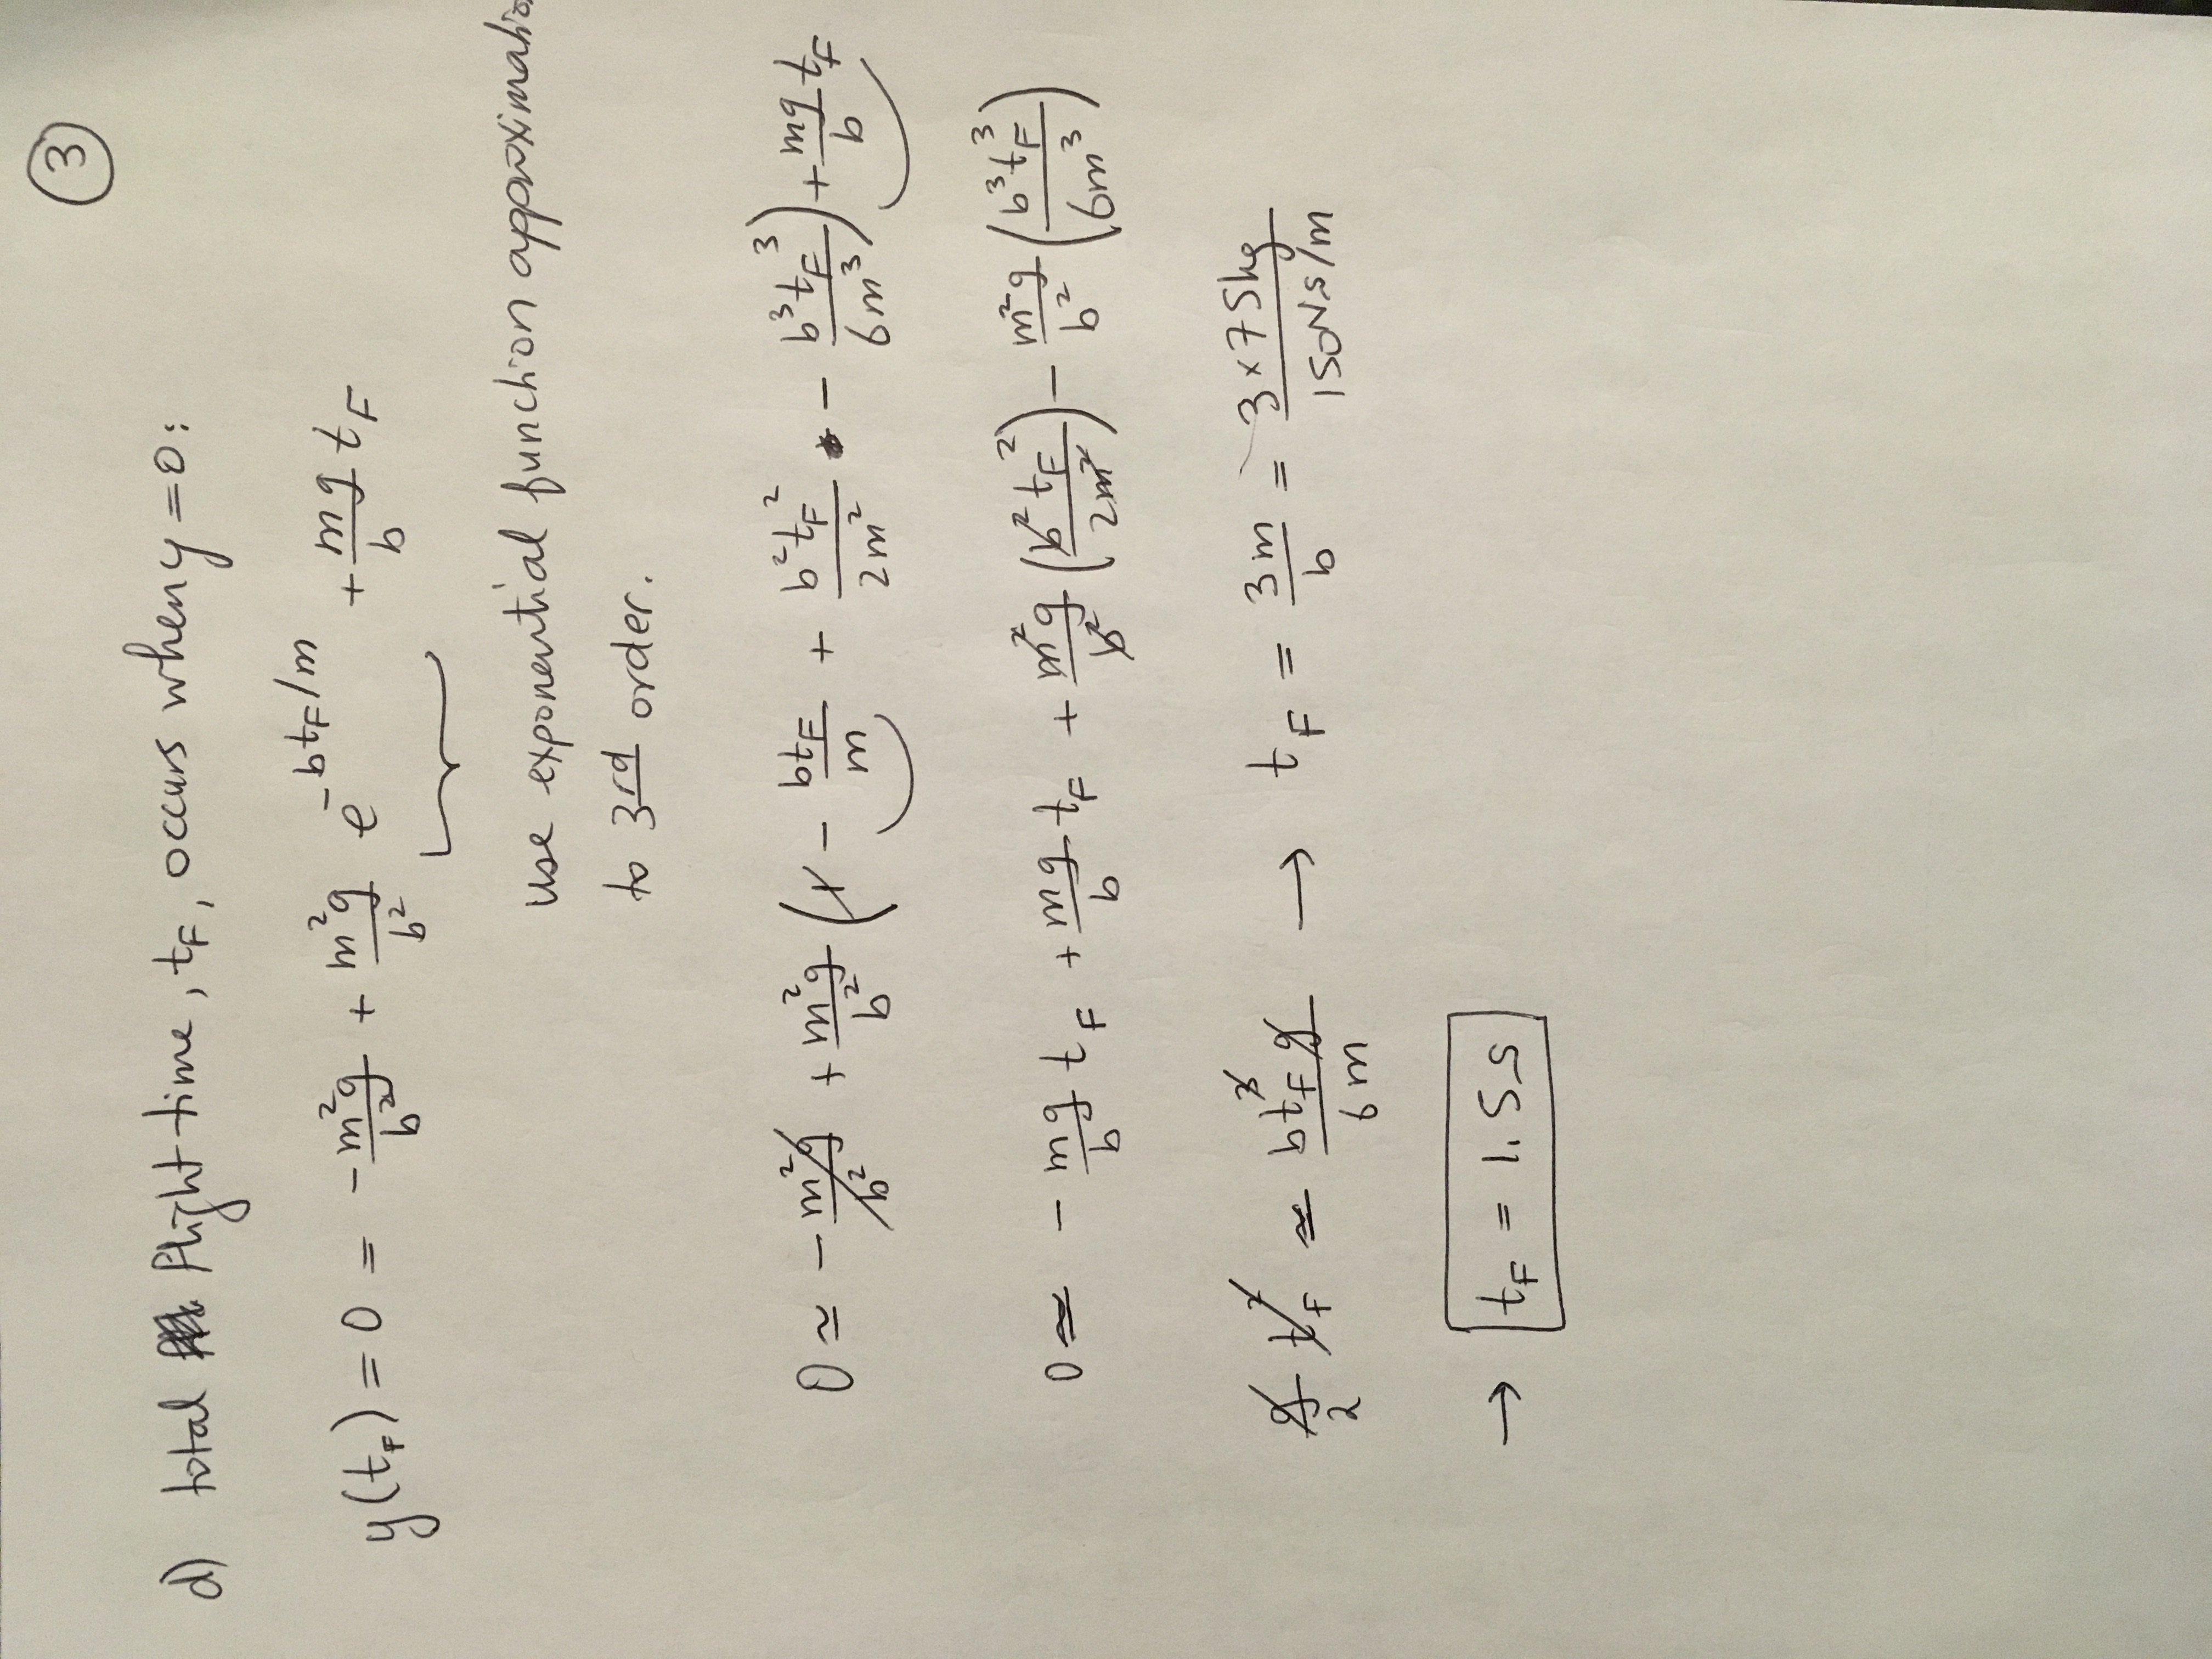 3
d) total flight time, t_F, occurs when y=0:
y(t_F) = 0 = - m²g/b² + m²g/b² e^(-bt_F/m) + mg/b t_F
use exponential function approximation
to 3rd order.
0 ≃ - m²g/b² + m²g/b² (1 - bt_F/m + b²t_F²/2m² - b³t_F³/6m³) + mg/b t_F
0 ≃ - mg/b t_F + mg/b t_F + m²g/b² (b²t_F²/2m²) - m²g/b² (b³t_F³/6m³)
g/2 t_F² ≃ bt_F³g/6m → t_F = 3m/b = 3×75kg/150N.s/m
→ t_F = 1.5 s